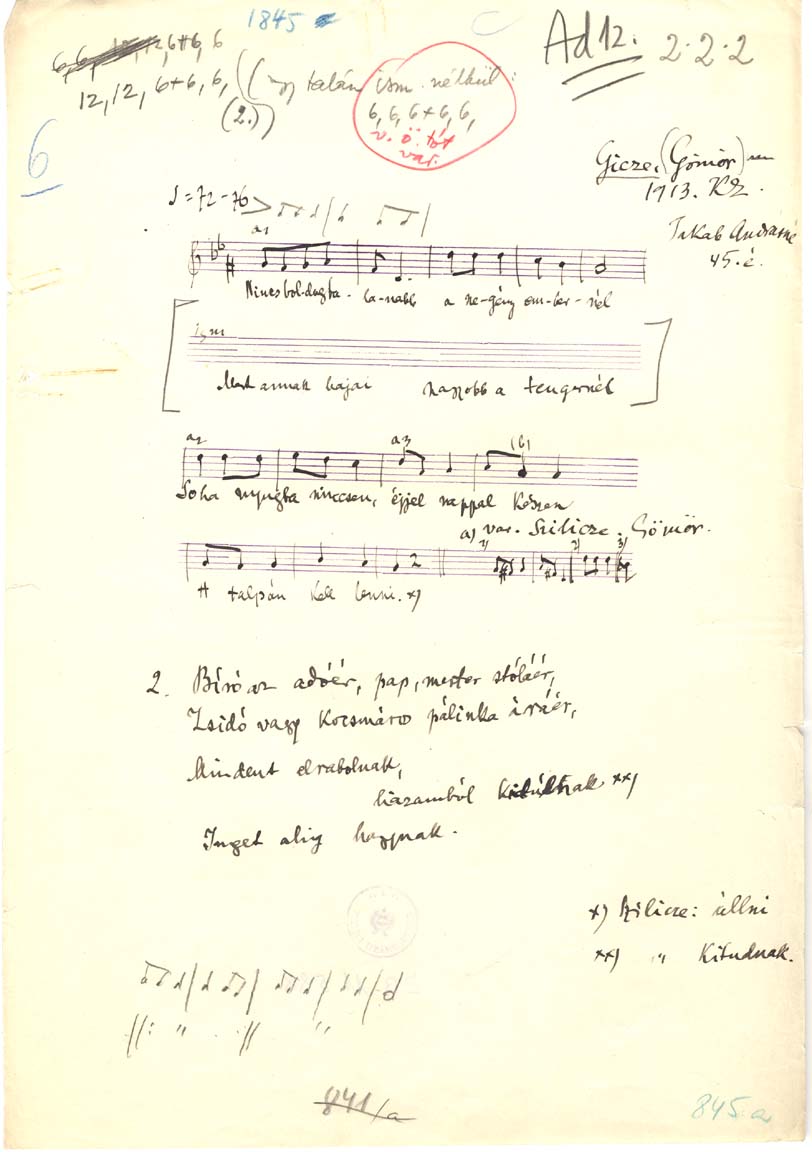 1845
6,6, 12,12,6+6,6
Ad 12. 2·2·2
12,12, 6+6, 6, (így talán ism. nélkül:
(2.)) 6,6,6+6,6,
v. ö. tót
var.
6
Gicze. (Gömör)
1913. KZ.
♩=72-76
45. é.
a1
Nincs boldogta- la-nabb a sze-gény em-ber-nél
ism
Mert annak bajai nagyobb a tengernél
a2 a3 (b)
Soha nyugta nincsen, éjjel nappal készen
a) var. Szilicze. Gömör.
1) 2) 3)
A talpán kell lenni. x)
2. Bíró az adóér, pap, mester stóláér,
Zsidó vagy kocsmáros pálinka áráér,
Mindent elrabolnak,
házamból kidúlnak xx)
Inget alig hagynak.
x) Szilicze: állni
xx) " kitudnak.
841/a
845·a